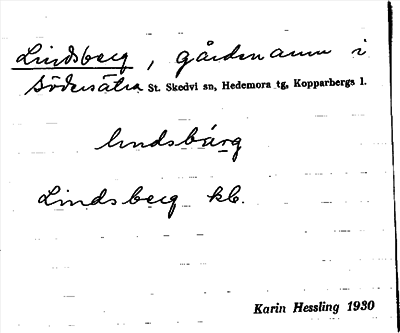 Lindsberg, gårdsnamn i
Södersätra St. Skedvi sn, Hedemora tg, Kopparbergs l.
lındsbárg
Lindsberg kb.
Karin Hessling 1930